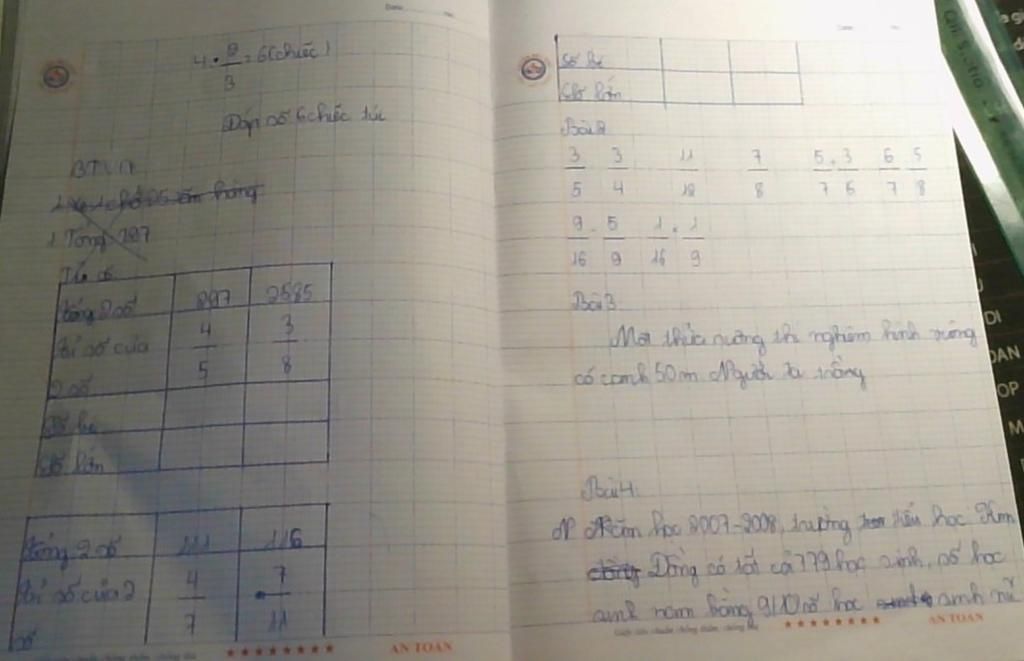 4 . 9/3 = 6 (chiếc)
Đáp số 6 chiếc túi
BTVN
1 Tổng 297
Tỉ số
Tổng 2 số 297 2585
Tỉ số của 2 số 4/5 3/8
Số bé
Số lớn
Tổng 2 số 111 116
Tỉ số của 2 số 4/7 7/11
AN TOAN
Số bé
Số lớn
Bài 2
3/5 3/4 11/12 7/8 5/7 . 3/6 6/7 5/8
9/16 . 5/9 1/16 . 1/9
Bài 3
Một thửa ruộng thí nghiệm hình vuông
có cạnh 50m Người ta trồng
Bài 4.
Năm học 2007-2008, trường tiểu học Kim
Đồng có tất cả 779 học sinh, số học
sinh nam bằng 9/10 số học sinh nữ
AN TOAN